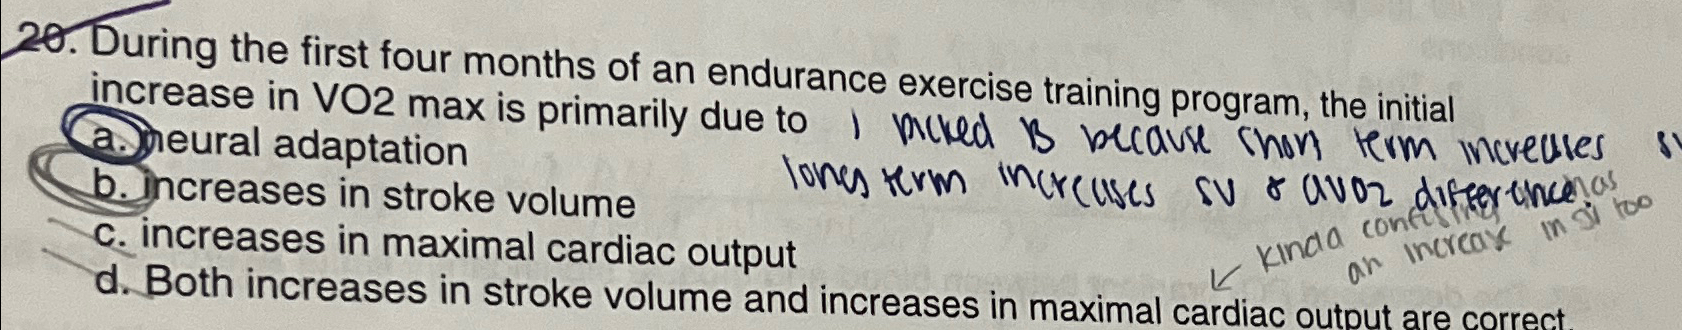 20. During the first four months of an endurance exercise training program, the initial
increase in VO2 max is primarily due to
I picked B because short term increases SV
long term increases SV & aVO2 difference.
a. neural adaptation
b. increases in stroke volume
c. increases in maximal cardiac output
kinda confusing has
an increase in SV too
d. Both increases in stroke volume and increases in maximal cardiac output are correct.